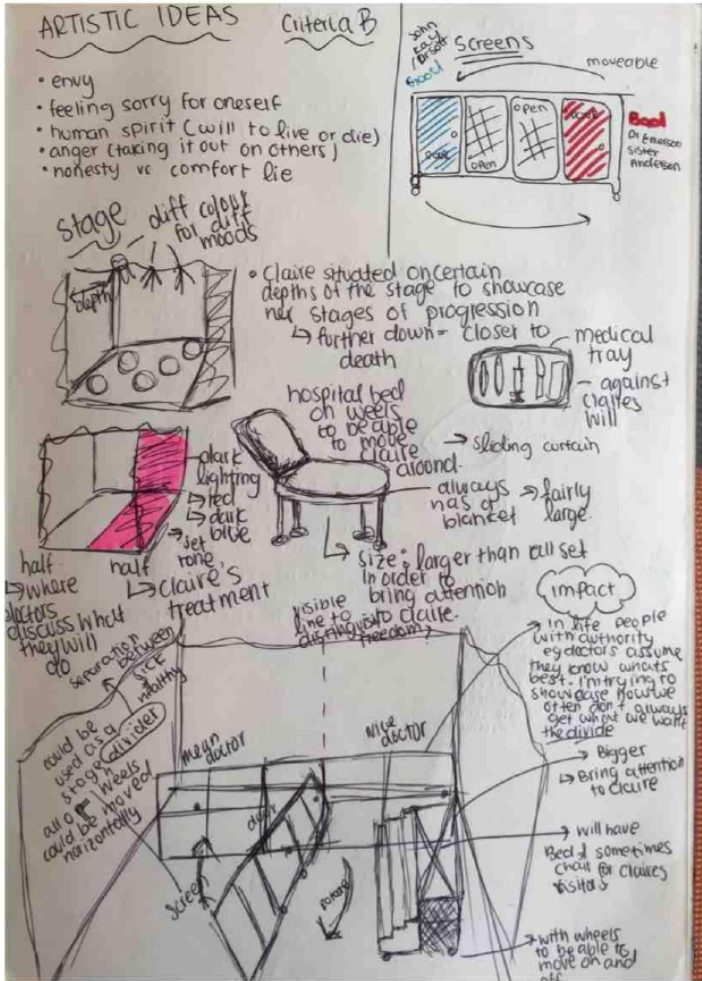 ARTISTIC IDEAS
Criteria B
• envy
• feeling sorry for oneself
• human spirit (will to live or die)
• anger (taking it out on others)
• honesty vs comfort lie
John
Kay
/Dr Scott
Good
Screens
moveable
open
open
Bad
Dr Emerson
Sister
Anderson
stage
diff colour
for diff
moods
depth
• Claire situated on certain
depths of the stage to showcase
her stages of progression
↳ further down = closer to
death
medical
tray
against
Claires
will
→ sliding curtain
hospital bed
on weels
to be able
to move
Claire
around.
always
has a
blanket
→ fairly
large.
↳ size: larger than all set
in order to
bring attention
to claire.
dark
lighting
↳ red
↳ dark
blue
→ set
tone
half
↳ where
doctors
discuss what
they will
do
half
↳ Claire's
treatment
visible
line to
freedom
separation between
sick
healthy
could be
used as a
stage
divider
all on weels
could be moved
horizontally
mean
doctor
nice doctor
door
screen
rotate
impact
→ in life people
with authority
eg doctors assume
they know whats
best. I'm trying to
showcase how we
often don't always
get what we want
the divide
→ Bigger
↳ Bring attention
to claire
→ will have
Bed & sometimes
chair for Claires
visitors
→ with wheels
to be able to
move on and
off